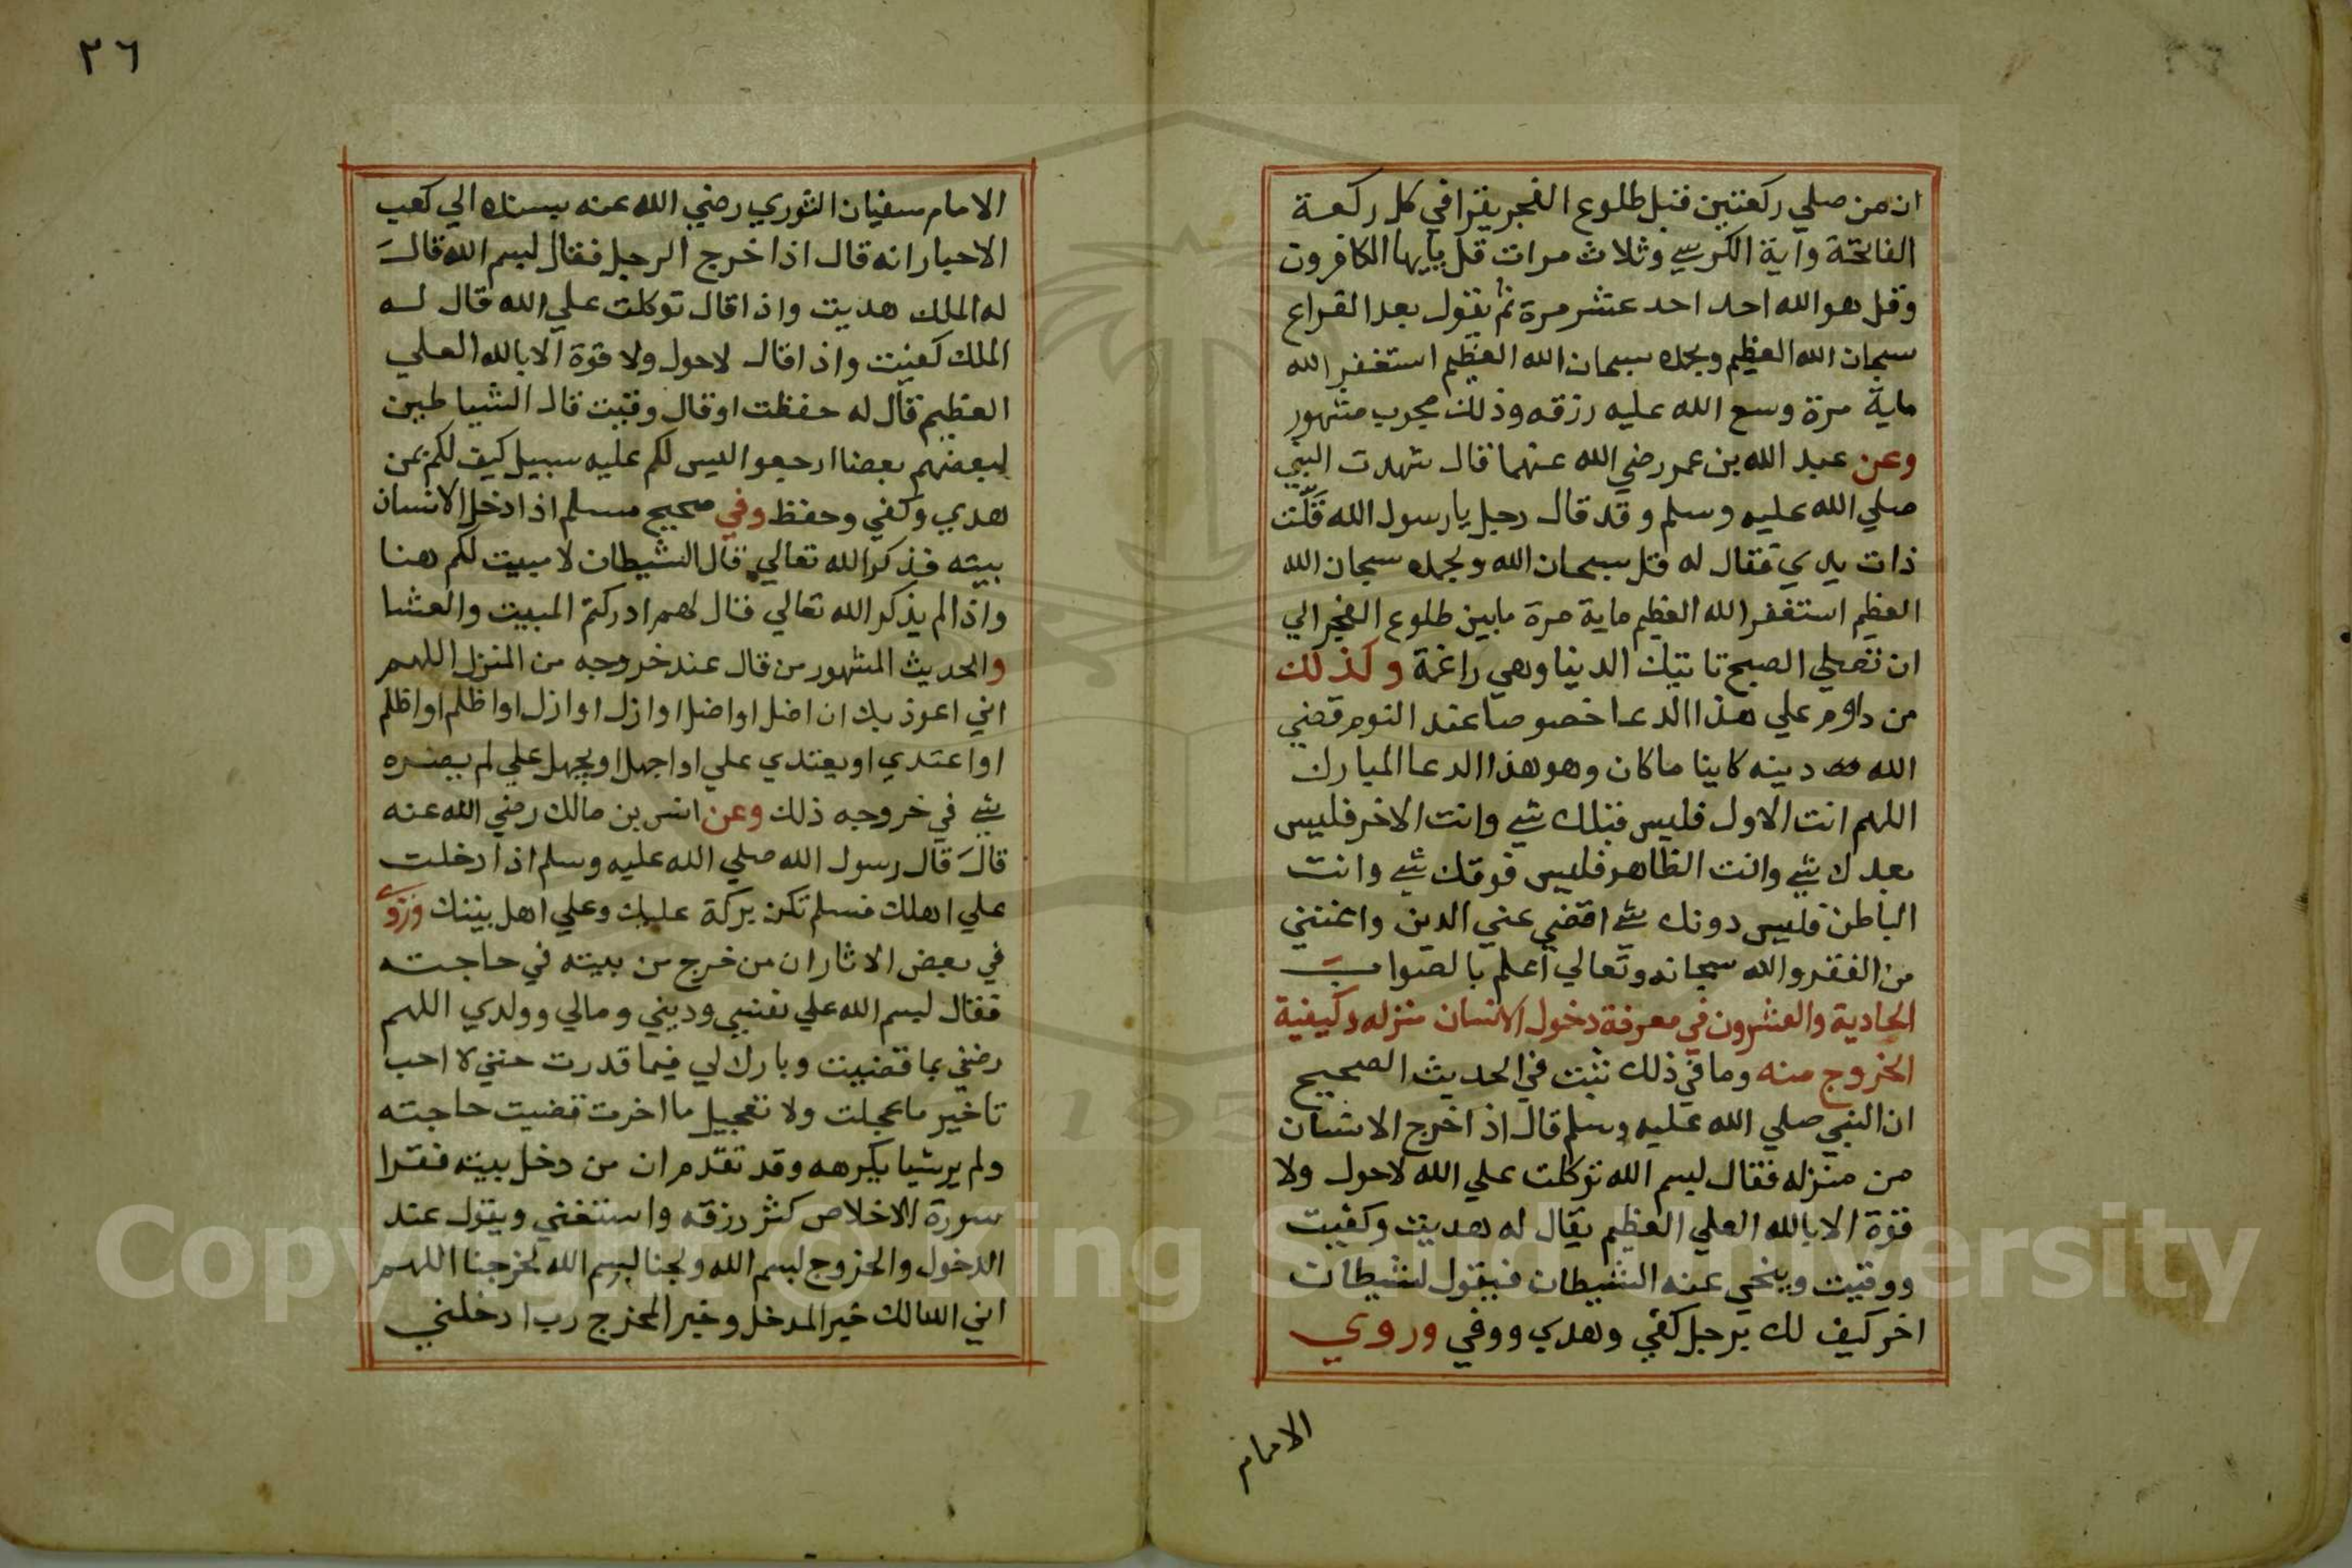 ان من صلي ركعتين قبل طلوع الفجر يقرا في كل ركعة
الفاتحة واية الكرسي وثلاث مرات قل يايها الكافرون
وقل هو الله احد احد عشر مرة ثم يقول بعد القراع
سبحان الله العظيم وبحمده سبحان الله العظيم استغفر الله
ماية مرة وسع الله عليه رزقه وذلك مجرب مشهور
وعن عبد الله بن عمر رضي الله عنهما قال شهدت النبي
صلي الله عليه وسلم وقد قال رجل يا رسول الله قَلَّت
ذات يدي فقال له قل سبحان الله وبحمده سبحان الله
العظيم استغفر الله العظيم ماية مرة مابين طلوع الفجر الي
ان تصلي الصبح تاتيك الدنيا وهي راغمة وكذلك
من داوم علي هذا الدعا خصوصا عند النوم قضي
الله دينه كاينا ما كان وهو هذا الدعا المبارك
اللهم انت الاول فليس قبلك شي وانت الاخر فليس
بعدك شي وانت الظاهر فليس فوقك شي وانت
الباطن فليس دونك شي اقضي عني الدين واغنني
من الفقر والله سبحانه وتعالي اعلم بالصواب
الحادية والعشرون في معرفة دخول الانسان منزله وكيفية
الخروج منه وما في ذلك ثبت في الحديث الصحيح
ان النبي صلي الله عليه وسلم قال اذا خرج الانسان
من منزله فقال بسم الله توكلت علي الله لاحول ولا
قوة الا بالله العلي العظيم يقال له هديت وكفيت
ووقيت وينحي عنه الشيطان فيقول لشيطان
اخر كيف لك برجل كفي وهدي ووقي وروي
الامام
٢٦
الامام سفيان الثوري رضي الله عنه بسنده الي كعب
الاحبار انه قال اذا خرج الرجل فقال بسم الله قال
له الملك هديت واذا قال توكلت علي الله قال له
الملك كفيت واذا قال لاحول ولا قوة الا بالله العلي
العظيم قال له حفظت او قال وقيت قال الشياطين
لبعضهم بعضا ارجعوا ليس لكم عليه سبيل كيف لكم بمن
هدي وكفي وحفظ وفي صحيح مسلم اذا دخل الانسان
بيته فذكر الله تعالي قال الشيطان لا مبيت لكم هنا
واذا لم يذكر الله تعالي قال لهم ادركتم المبيت والعشا
والحديث المشهور من قال عند خروجه من المنزل اللهم
اني اعوذ بك ان اضل او اضل او ازل او ازل او اظلم او اظلم
او اعتدي او يعتدي علي او اجهل او يجهل علي لم يضره
شي في خروجه ذلك وعن انس بن مالك رضي الله عنه
قال قال رسول الله صلي الله عليه وسلم اذا دخلت
علي اهلك فسلم تكن بركة عليك وعلي اهل بيتك وروي
في بعض الاثار ان من خرج من بيته في حاجته
فقال بسم الله علي نفسي وديني ومالي وولدي اللهم
رضني بما قضيت وبارك لي فيما قدرت حتي لا احب
تاخير ما عجلت ولا تعجيل ما اخرت قضيت حاجته
ولم ير شيا يكرهه وقد تقدم ان من دخل بيته فقرا
سورة الاخلاص كثر رزقه واستغني ويقول عند
الدخول والخروج بسم الله ولجنا بسم الله خرجنا اللهم
اني اسالك خير المدخل وخير المخرج رب ادخلني
Copyright © King Saud University